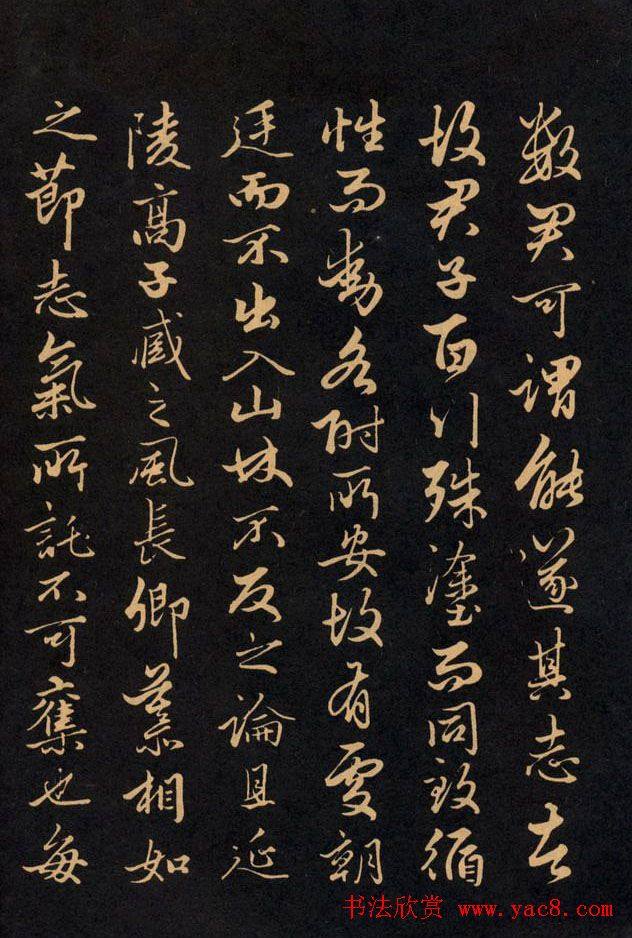 數君可謂能遂其志者
故君子百行殊塗而同致循
性而動各附所安故有處朝
廷而不出入山林不反之論且延
陵高子臧之風長卿慕相如
之節志氣所託不可奪也每
书法欣赏 www.yac8.com